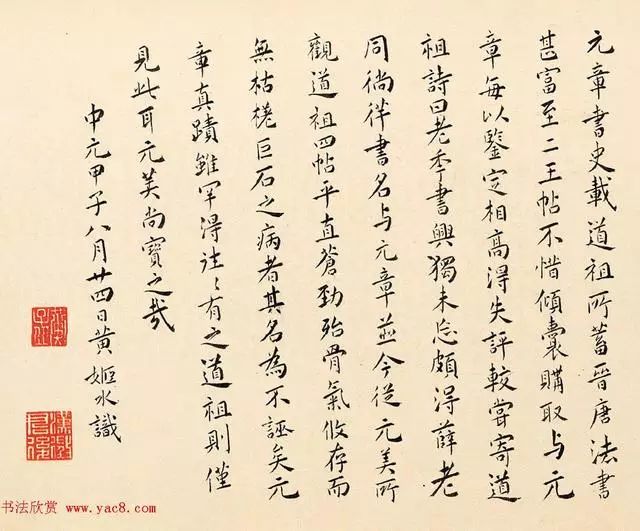 元章書史載道祖所蓄晉唐法書
甚富至二王帖不惜傾囊購取与元
章每以鑒定相高得失評較嘗寄道
祖詩曰老季書興獨未忘頗得薛老
同徜徉書名与元章並今從元美所
觀道祖四帖平直蒼勁殆骨氣攸存而
無枯槎巨石之病者其名為不誣矣元
章真蹟雖罕得往〻有之道祖則僅
見此耳元美尚寶之哉
中元甲子八月廿四日黄姬水識
书法欣赏 www.yac8.com